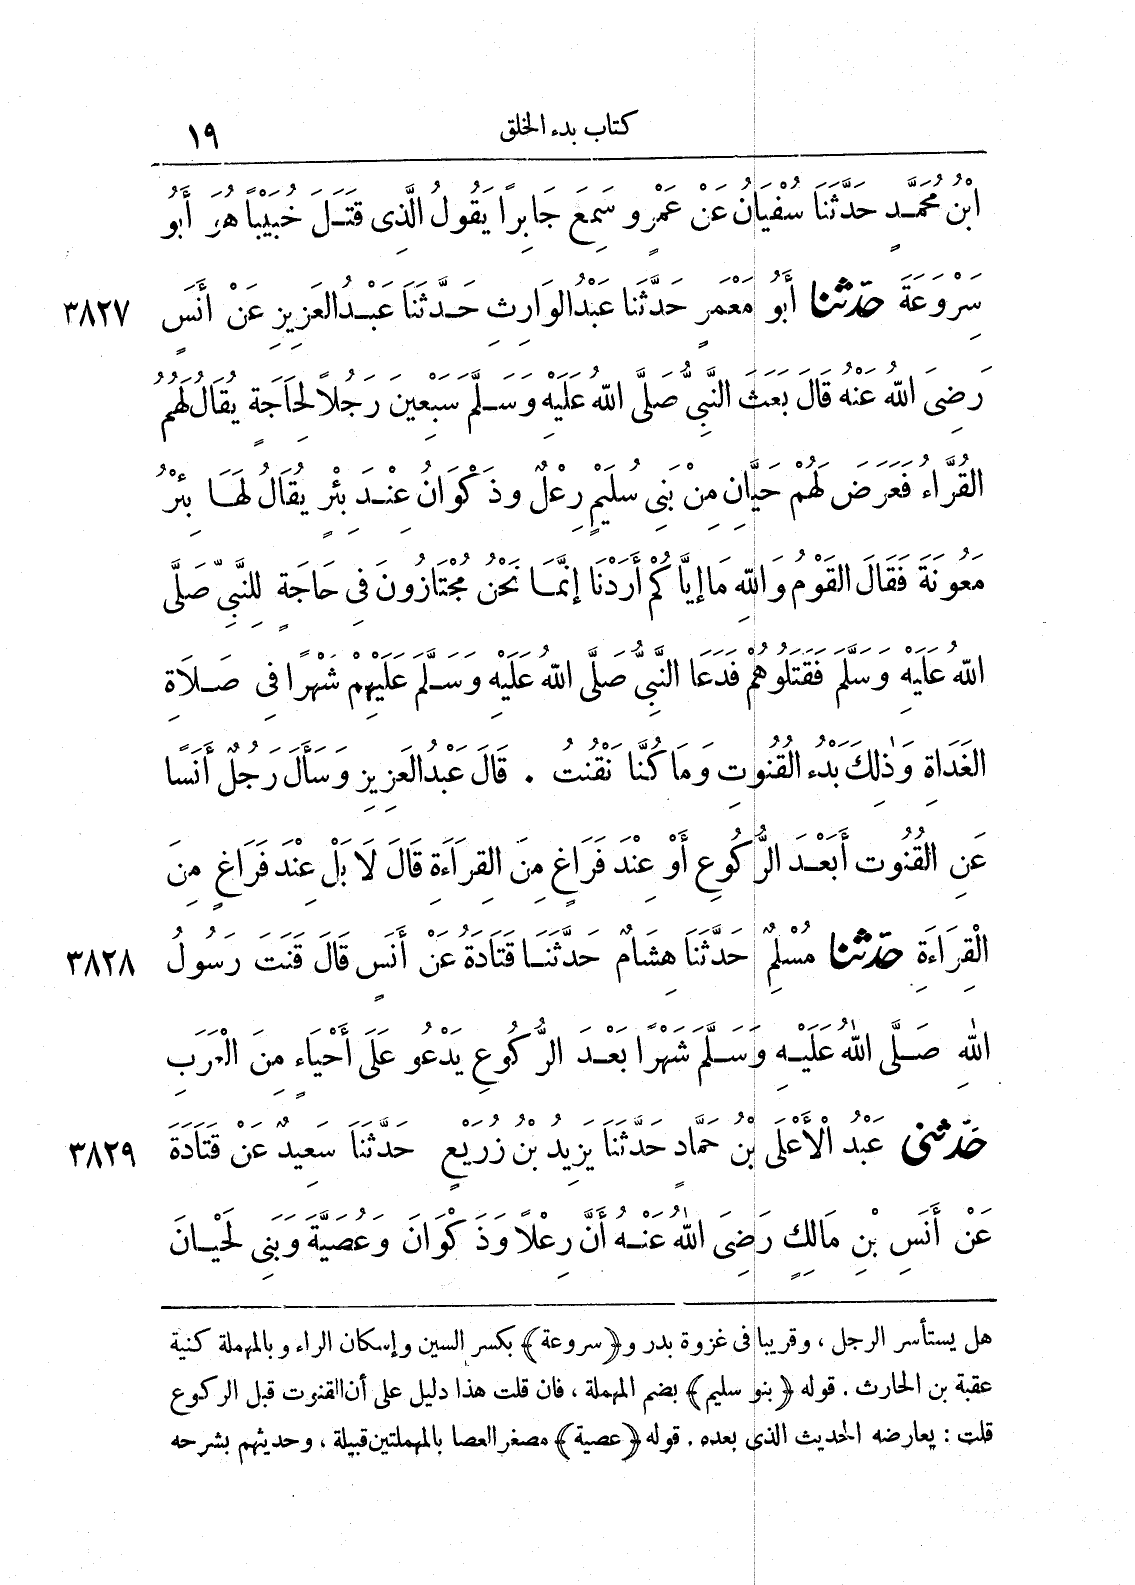 كتاب بدء الخلق ١٩
ابْنُ مُحَمَّدٍ حَدَّثَنَا سُفْيَانُ عَنْ عَمْرٍو سَمِعَ جَابِراً يَقُولُ الَّذِى قَتَلَ خُبَيْباً هُوَ أَبُو
سِرْوَعَةَ حَدَّثَنَا أَبُو مَعْمَرٍ حَدَّثَنَا عَبْدُ الوَارِثِ حَدَّثَنَا عَبْدُ العَزِيزِ عَنْ أَنَسٍ ٣٨٢٧
رَضِىَ اللّٰهُ عَنْهُ قَالَ بَعَثَ النَّبِىُّ صَلَّى اللّٰهُ عَلَيْهِ وَسَلَّمَ سَبْعِينَ رَجُلاً لِحَاجَةٍ يُقَالُ لَهُمُ
القُرَّاءُ فَعَرَضَ لَهُمْ حَيَّانِ مِنْ بَنِى سُلَيْمٍ رِعْلٌ وذَكْوَانُ عِنْدَ بِئْرٍ يُقَالُ لَهَا بِئْرُ
مَعُونَةَ فَقَالَ القَوْمُ وَاللّٰهِ مَا إِيَّاكُمْ أَرَدْنَا إِنَّمَا نَحْنُ مُجْتَازُونَ فِى حَاجَةٍ لِلنَّبِىِّ صَلَّى
اللّٰهُ عَلَيْهِ وَسَلَّمَ فَقَتَلُوهُمْ فَدَعَا النَّبِىُّ صَلَّى اللّٰهُ عَلَيْهِ وَسَلَّمَ عَلَيْهِمْ شَهْرًا فِى صَلَاةِ
الغَدَاةِ وَذٰلِكَ بَدْءُ القُنُوتِ وَمَا كُنَّا نَقْنُتُ . قَالَ عَبْدُ العَزِيزِ وَسَأَلَ رَجُلٌ أَنَسًا
عَنِ القُنُوتِ أَبَعْدَ الرُّكُوعِ أَوْ عِنْدَ فَرَاغٍ مِنَ القِرَاءَةِ قَالَ لَا بَلْ عِنْدَ فَرَاغٍ مِنَ
الْقِرَاءَةِ حَدَّثَنَا مُسْلِمٌ حَدَّثَنَا هِشَامٌ حَدَّثَنَا قَتَادَةُ عَنْ أَنَسٍ قَالَ قَنَتَ رَسُولُ ٣٨٢٨
اللّٰهِ صَلَّى اللّٰهُ عَلَيْهِ وَسَلَّمَ شَهْرًا بَعْدَ الرُّكُوعِ يَدْعُو عَلَى أَحْيَاءٍ مِنَ الْعَرَبِ
حَدَّثَنِى عَبْدُ الْأَعْلَى بْنُ حَمَّادٍ حَدَّثَنَا يَزِيدُ بْنُ زُرَيْعٍ حَدَّثَنَا سَعِيدٌ عَنْ قَتَادَةَ ٣٨٢٩
عَنْ أَنَسِ بْنِ مَالِكٍ رَضِىَ اللّٰهُ عَنْهُ أَنَّ رِعْلاً وَذَكْوَانَ وَعُصَيَّةَ وَبَنِى لَحْيَانَ
هل يستأسر الرجل ، وقريبا فى غزوة بدر و﴿سروعة﴾ بكسر السين وإسكان الراء وبالمهملة كنية
عقبة بن الحارث . قوله ﴿بنو سليم﴾ بضم المهملة ، فان قلت هذا دليل على أن القنوت قبل الركوع
قلت : يعارضه الحديث الذى بعده . قوله ﴿عصية﴾ مصغر العصا بالمهملتين قبيلة ، وحديثهم بشرحه